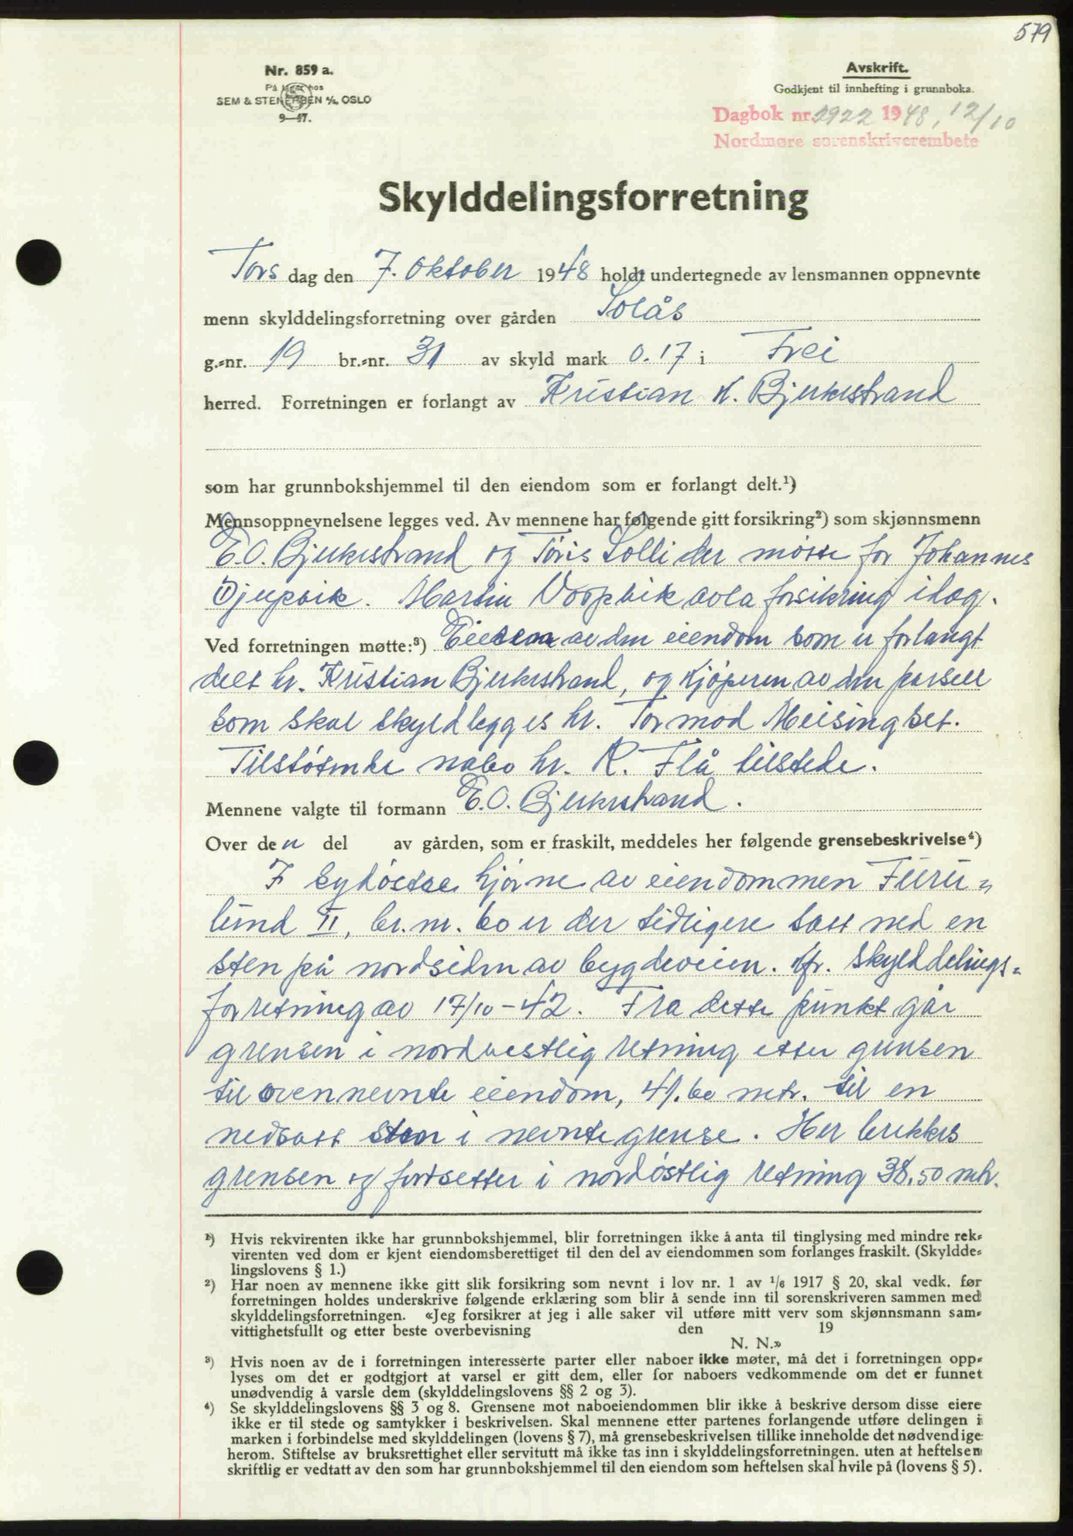 579
Nr. 859 a.
På lager hos
SEM & STENERSEN A/S, OSLO
9—47.
Avskrift.
Godkjent til innhefting i grunnboka.
Dagbok nr. 2922 1948, 12/10
Nordmøre sorenskriverembete
Skylddelingsforretning
Tors dag den 7. oktober 1948 holdt undertegnede av lensmannen oppnevnte
menn skylddelingsforretning over gården Solås
g.-nr. 19 br.-nr. 31 av skyld mark 0.17 i Frei
herred. Forretningen er forlangt av Kristian K. Bjerkestrand
som har grunnbokshjemmel til den eiendom som er forlangt delt.¹)
Mennsoppnevnelsene legges ved. Av mennene har følgende gitt forsikring²) som skjønnsmenn
E.O. Bjerkestrand og Tøris Solli der møtte for Johannes
Djupvik. Martin Vorpvik avla forsikring idag.
Ved forretningen møtte:³) Eieren av den eiendom som er forlangt
delt hr. Kristian Bjerkestrand, og kjøperen av den parsell
som skal skyldlegges hr. Tormod Meisingset.
Tilstøtende nabo hr. R. Flå tilstede.
Mennene valgte til formann E.O. Bjerkestrand.
Over den del av gården, som er fraskilt, meddeles her følgende grensebeskrivelse⁴)
I sydøstre hjørne av eiendommen Furu-
lund II, br.nr. 60 er der tidligere satt ned en
sten på nordsiden av bygdeveien. kfr. skylddelings-
forretning av 17/10-42. Fra dette punkt går
grensen i nordvestlig retning etter grensen
til ovennevnte eiendom, 41.60 mtr. til en
nedsatt sten i nevnte grense. Her brekkes
grensen og fortsetter i nordøstlig retning 38,50 mtr.
¹) Hvis rekvirenten ikke har grunnbokshjemmel, blir forretningen ikke å anta til tinglysing med mindre rek-
virenten ved dom er kjent eiendomsberettiget til den del av eiendommen som forlanges fraskilt. (Skyldde-
lingslovens § 1.)
²) Har noen av mennene ikke gitt slik forsikring som nevnt i lov nr. 1 av 1/6 1917 § 20, skal vedk. før
forretningen holdes underskrive følgende erklæring som blir å sende inn til sorenskriveren sammen med
skylddelingsforretningen. «Jeg forsikrer at jeg i alle saker vil utføre mitt verv som skjønnsmann sam-
vittighetsfullt og etter beste overbevisning den 19
N. N.»
³) Hvis noen av de i forretningen interesserte parter eller naboer ikke møter, må det i forretningen opp-
lyses om det er godtgjort at varsel er gitt dem, eller for naboers vedkommende om det er funnet
unødvendig å varsle dem (skylddelingslovens §§ 2 og 3).
⁴) Se skylddelingslovens §§ 3 og 8. Grensene mot naboeiendommen blir ikke å beskrive dersom disse eiere
ikke er til stede og samtykker i beskrivelsen. Skal mennene etter partenes forlangende utføre delingen i
marken i forbindelse med skylddelingen (lovens § 7), må grensebeskrivelsen tillike inneholde det nødvendige
herom. Stiftelse av bruksrettighet eller servitutt må ikke tas inn i skylddelingsforretningen. uten at heftelsen
skriftlig er vedtatt av den som har grunnbokshjemmel til den eiendom som heftelsen skal hvile på (lovens § 5).